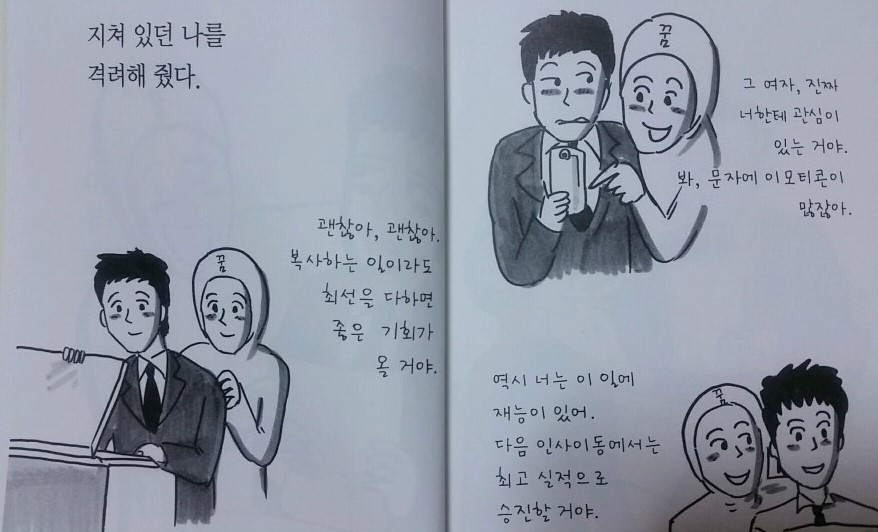 지쳐 있던 나를
격려해 줬다.
괜찮아, 괜찮아.
복사하는 일이라도
최선을 다하면
좋은 기회가
올 거야.
꿈
꿈
그 여자, 진짜
너한테 관심이
있는 거야.
봐, 문자에 이모티콘이
많잖아.
역시 너는 이 일에
재능이 있어.
다음 인사이동에서는
최고 실적으로
승진할 거야.
꿈